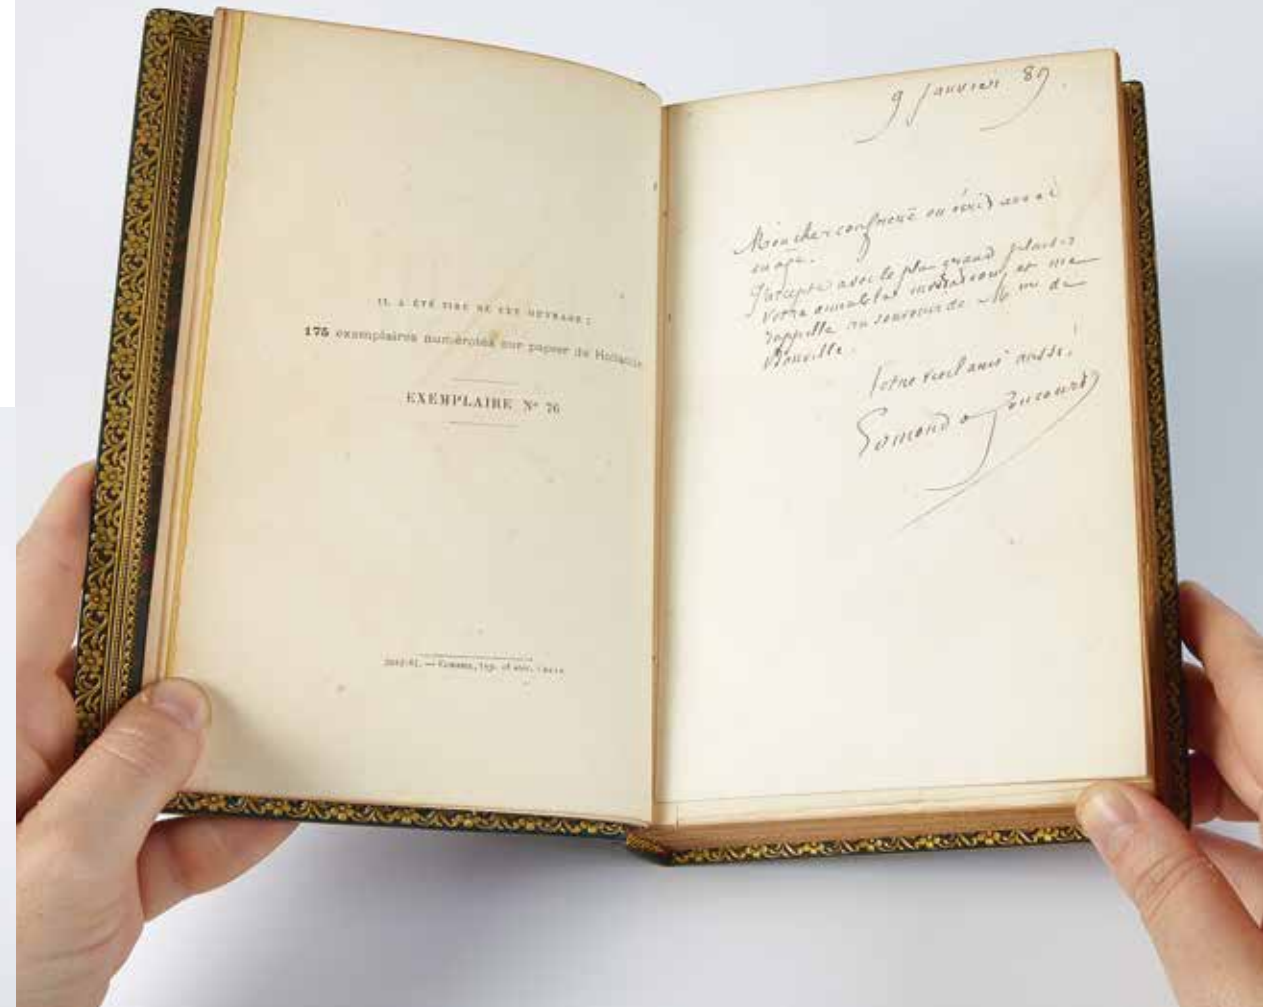 IL A ÉTÉ TIRÉ DE CET OUVRAGE :
175 exemplaires numérotés sur papier de Hollande
EXEMPLAIRE N° 76
typ. et
9 janvier 89.
Mon cher confrère en
J'accepte avec le plus grand plaisir
votre aimable invitation, et me
rappelle au souvenir de Mme de
Bonville.
Votre vieil ami aussi.
Edmond de Goncourt